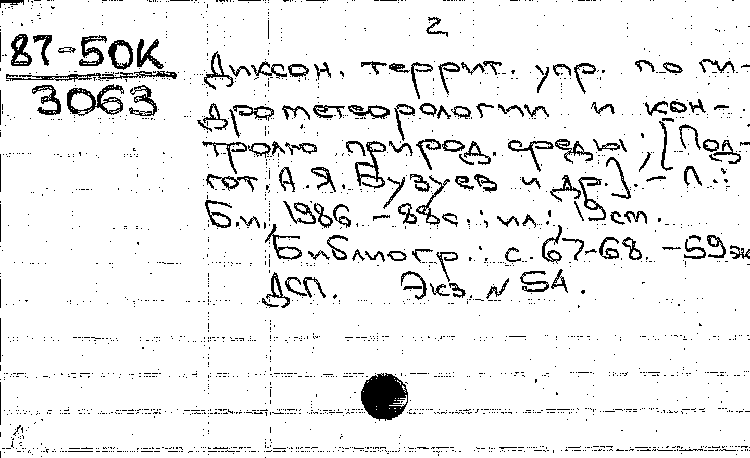 2
87-50К
3063
Диксон. террит. упр. по ги-
дрометеорологии и кон-
тролю природ. среды; [Под-
гот. А.Я. Бузуев и др.]. - Л.:
Б.и., 1986. - 88с.: ил.; 19см.
Библиогр.: с. 67-68. - 59эк
ДСП. Экз. N 5А.